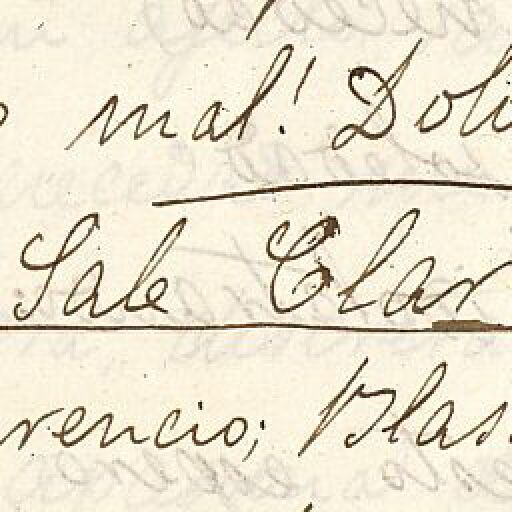 mal! Dolo
Sale Clar
rencio; Blas.